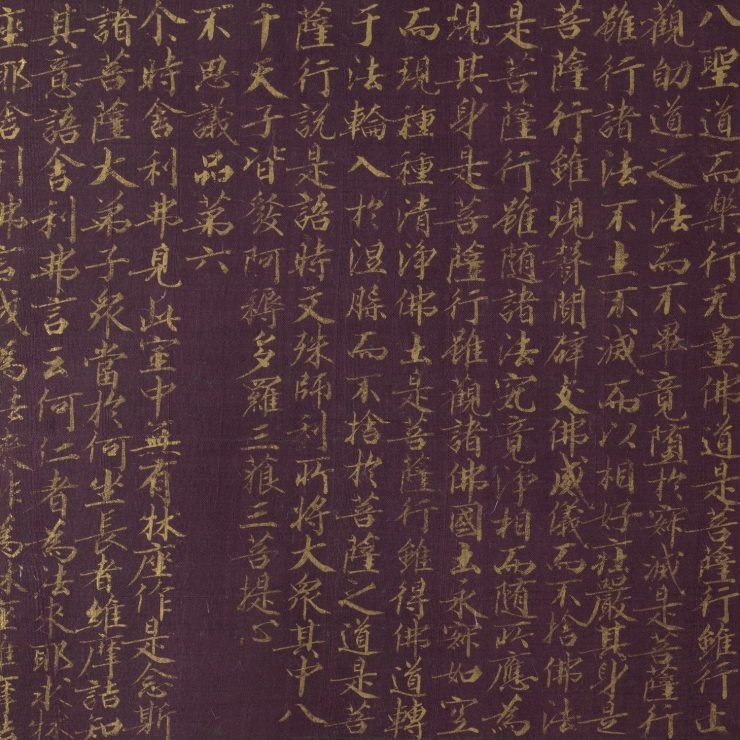 八聖道而樂行无量佛道是菩薩行雖行止
觀助道之法而不畢竟墮於寂滅是菩薩行
雖行諸法不生不滅而以相好莊嚴其身是
菩薩行雖現聲聞辟支佛威儀而不捨佛法
是菩薩行雖隨諸法究竟淨相而隨所應為
現其身是菩薩行雖觀諸佛國土永寂如空
而現種種清淨佛土是菩薩行雖得佛道轉
于法輪入於涅槃而不捨於菩薩之道是菩
薩行說是語時文殊師利所將大眾其中八
千天子皆發阿耨多羅三藐三菩提心
不思議品第六
尒時舍利弗見此室中無有牀座作是念斯
諸菩薩大弟子眾當於何坐長者維摩詰知
其意語舍利弗言云何仁者為法來耶求牀
座耶舍利弗言我為法來非為牀座維摩